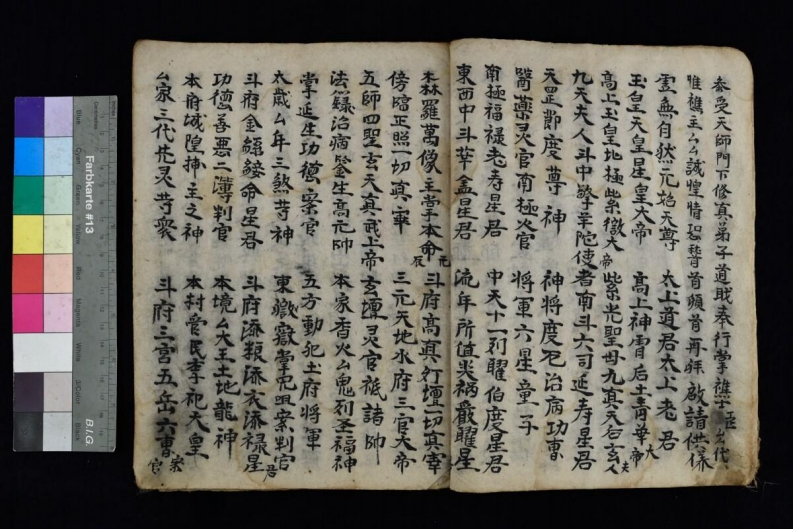 叅受天師門下修真弟子道職奉行掌醮事臣厶代
惟醮主厶厶誠惶誠恐稽首頓首再拜啟請供養
虛無自然元始天尊 太上道君太上老君
玉皇天皇星皇大帝 高上神霄后土青華大帝
高上玉皇地極紫微大帝 紫光聖母九真天后玄
九天夫人斗中擎羊陀使者南斗六司延壽星君
天罡節度尊神 神將度厄治病功曹
醫藥灵官南極火官 將軍六星童子
南極福禄老壽星君 中天十一列曜伯度星君
東西中斗華盖星君 流年所值灾禍嚴曜星
森羅萬像主掌本命元辰 斗府髙真行壇一切真宰
傍臨正照一切真宰 三元天地水府三官大帝
五師四聖玄天真武上帝 玄壇灵官祇諸帥
法籙治病鑒生高元帥 本家香火厶鬼列圣福神
掌延生功德案官 五方動犯土府將軍
太歲厶年三煞芽神 東嶽嶽掌 案判官
斗府金 命星君 斗府添粮添衣添禄星君
功德善惡二簿判官 本境厶大王土地龍神
本府城隍 主之神 本村 民李祀天皇
厶家三代 灵 眾 斗府三宫五岳六曹案官
Farbkarte #13
B.I.G.
Blue
Cyan
Green
Yellow
Red
Magenta
White
3/Color
Black
Centimetres